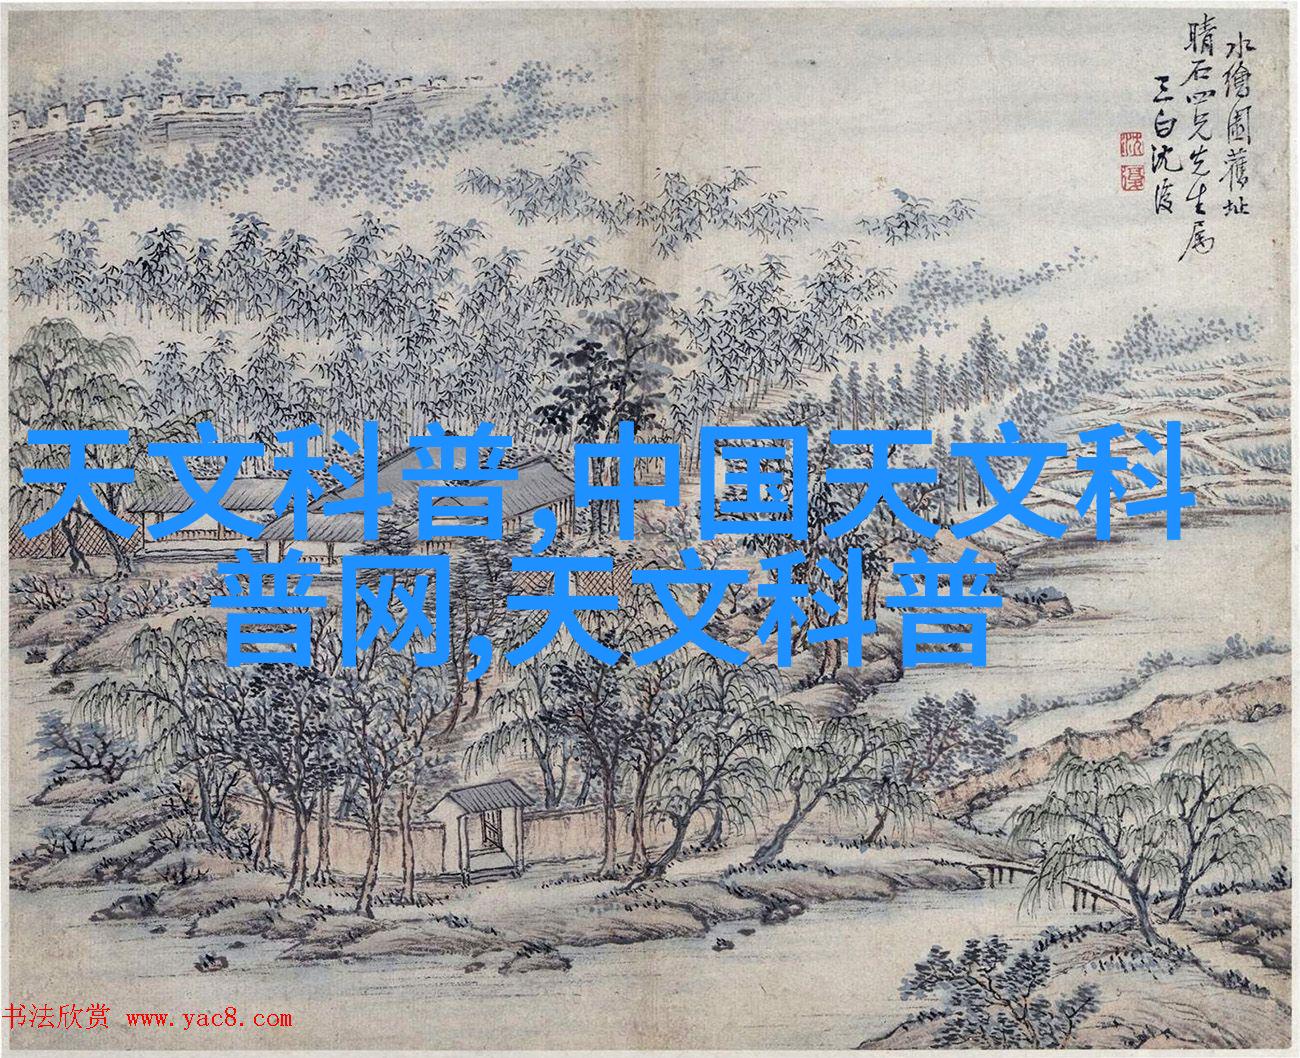 水繪園舊址
晴石四兄先生属
三白沈復
沈
復
天文科普,中国天文科
普网,天文科普
书法欣赏 www.yac8.com